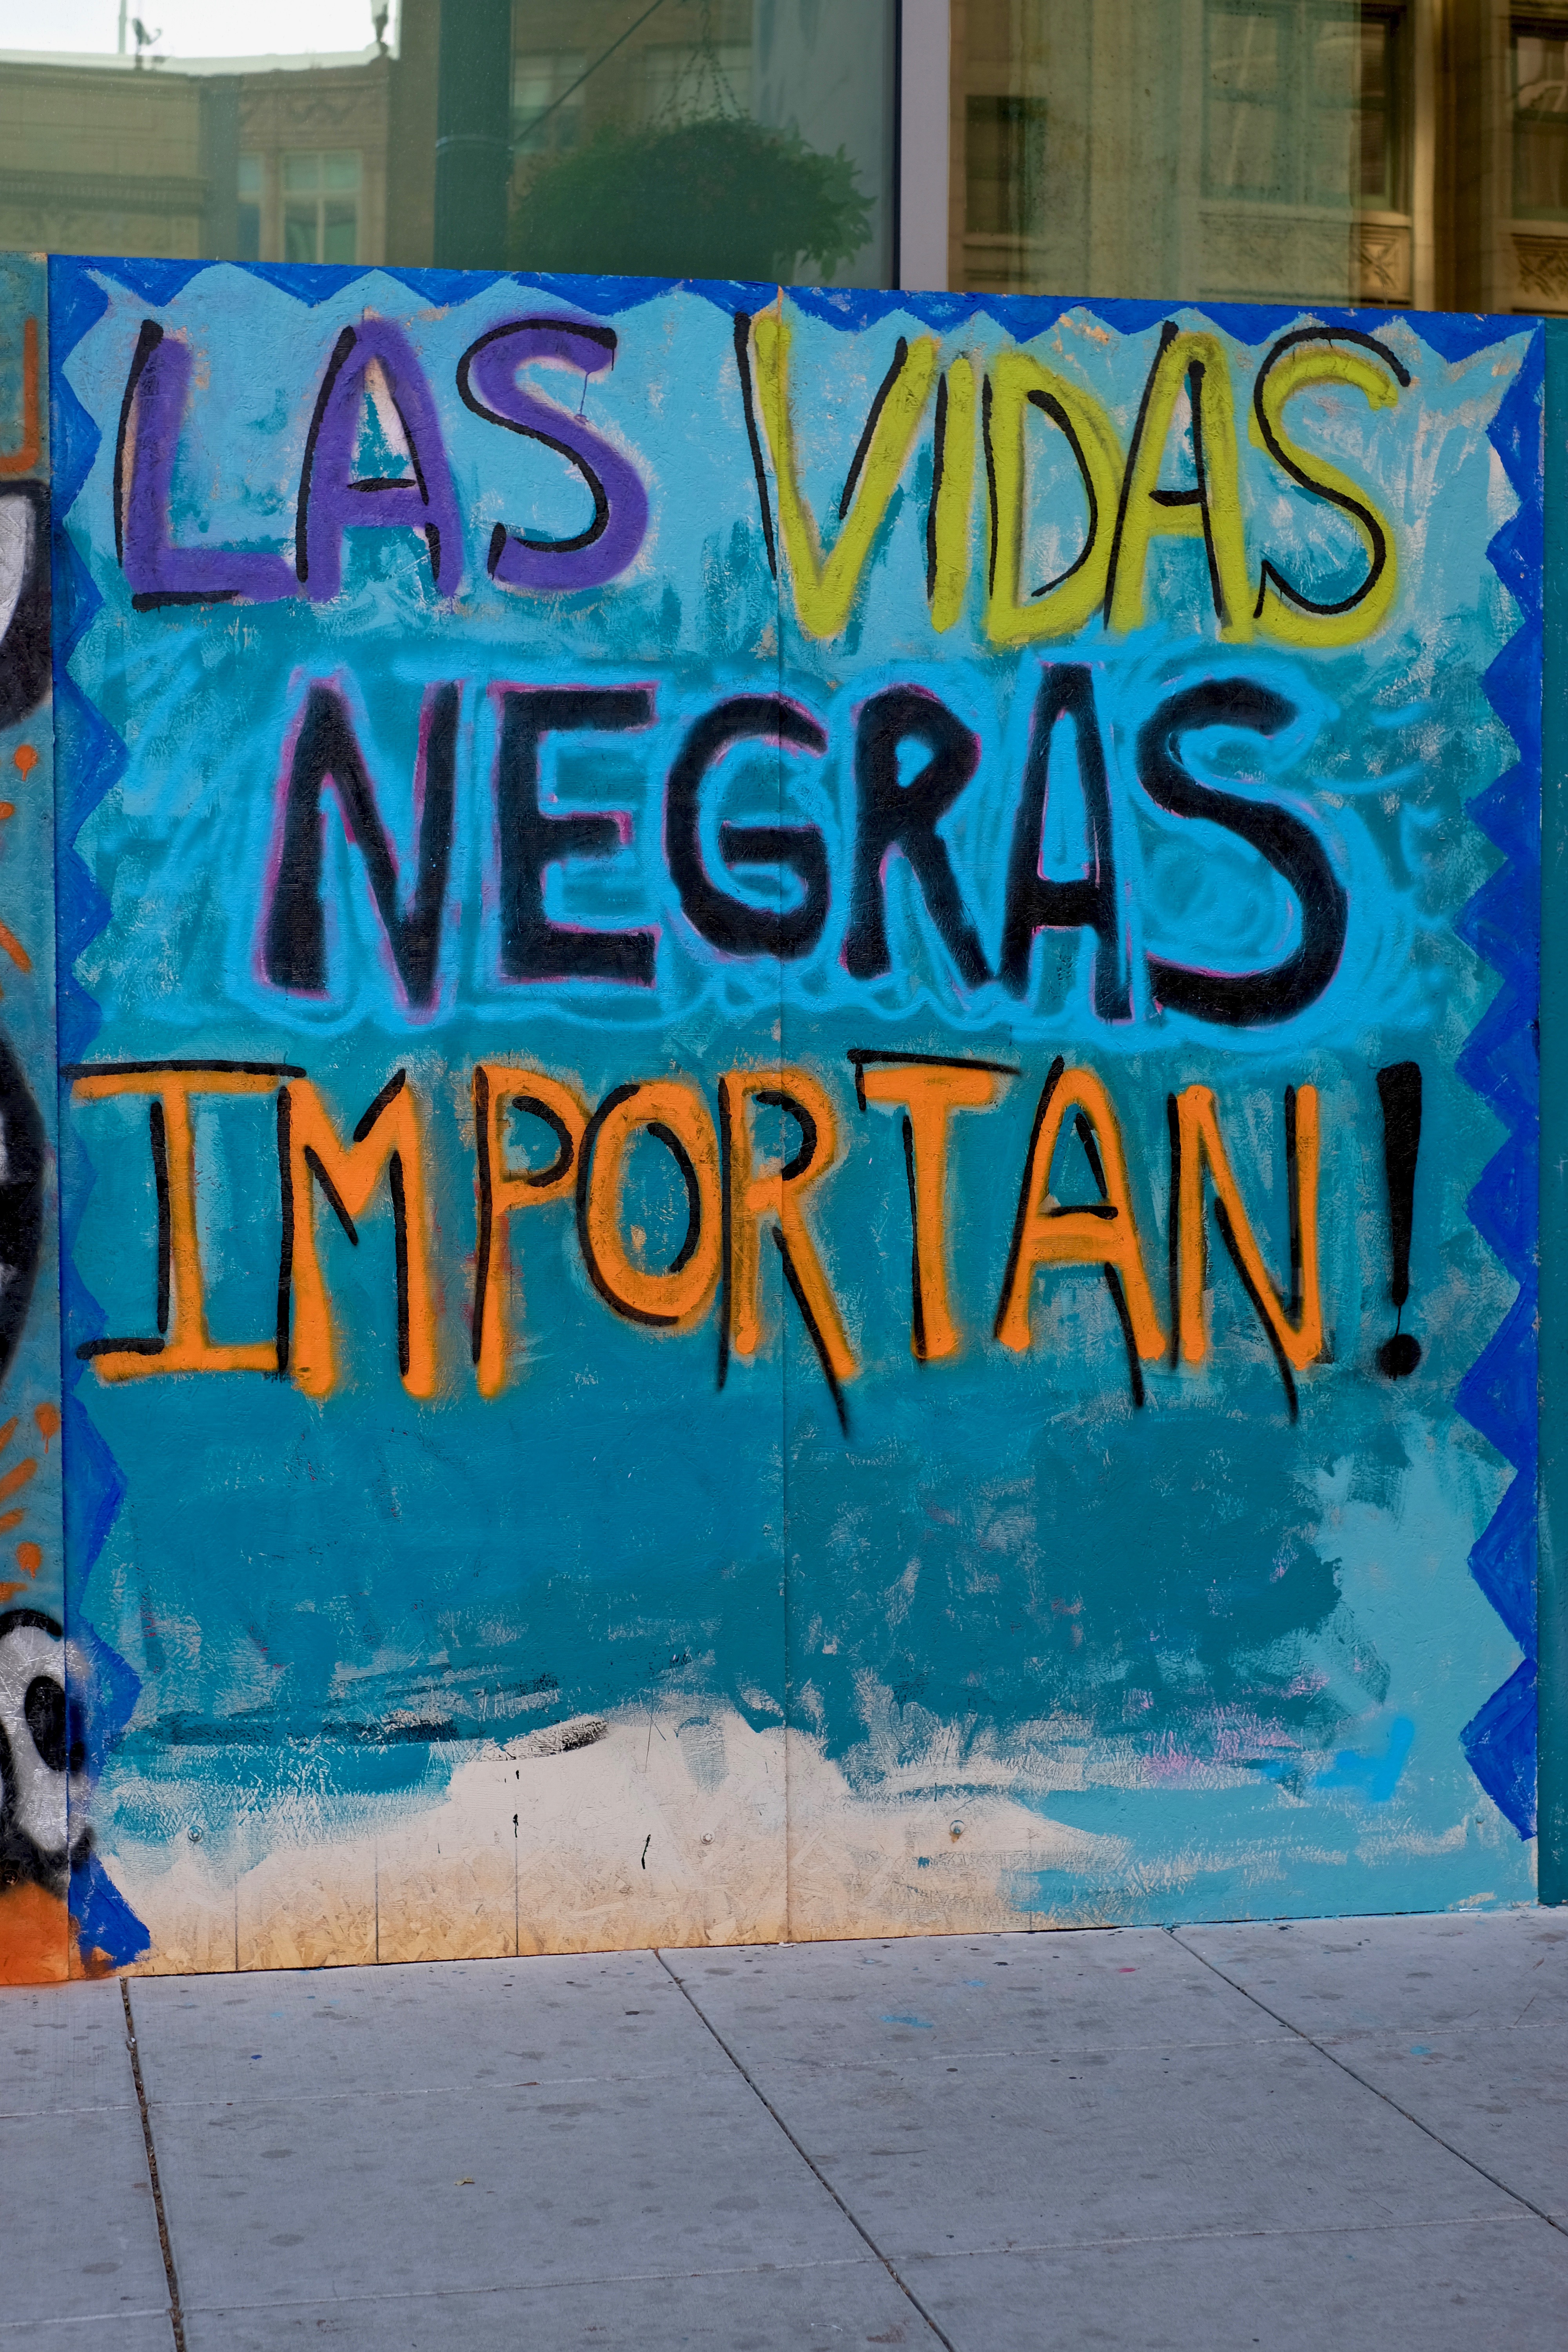 LAS VIDAS
NEGRAS
IMPORTAN!